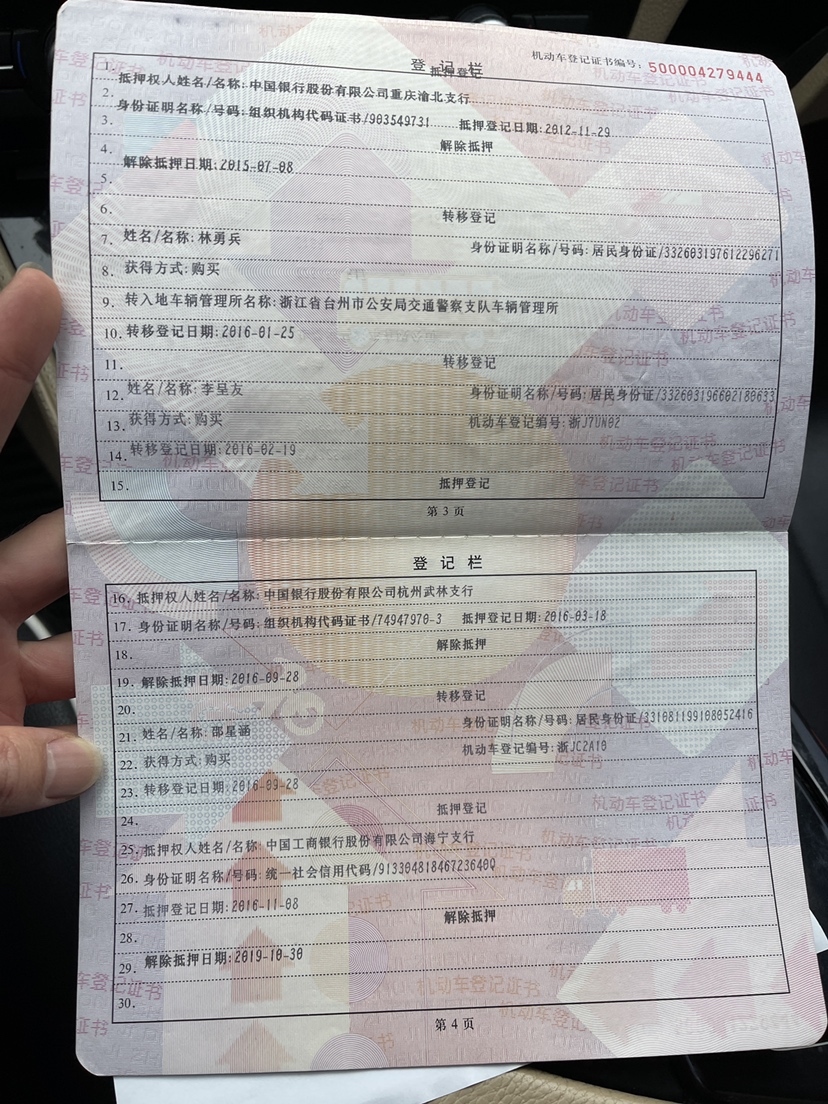 登记栏 机动车登记证书编号：500004279444
1. 抵押登记
2. 抵押权人姓名/名称:中国银行股份有限公司重庆渝北支行
3. 身份证明名称/号码:组织机构代码证书/903549731 抵押登记日期:2012-11-29
4. 解除抵押
5. 解除抵押日期:2015-07-08
6. 转移登记
7. 姓名/名称:林勇兵 身份证明名称/号码:居民身份证/332603197612296271
8. 获得方式:购买
9. 转入地车辆管理所名称:浙江省台州市公安局交通警察支队车辆管理所
10. 转移登记日期:2016-01-25
11. 转移登记
12. 姓名/名称:李呈友 身份证明名称/号码:居民身份证/332603196602180633
13. 获得方式:购买 机动车登记编号:浙J7UN02
14. 转移登记日期:2016-02-19
15. 抵押登记
第3页
登记栏
16. 抵押权人姓名/名称:中国银行股份有限公司杭州武林支行
17. 身份证明名称/号码:组织机构代码证书/74947970-3 抵押登记日期:2016-03-18
18. 解除抵押
19. 解除抵押日期:2016-09-28
20. 转移登记
21. 姓名/名称:邵星涵 身份证明名称/号码:居民身份证/331081199108052416
22. 获得方式:购买 机动车登记编号:浙JC2A10
23. 转移登记日期:2016-09-28
24. 抵押登记
25. 抵押权人姓名/名称:中国工商银行股份有限公司海宁支行
26. 身份证明名称/号码:统一社会信用代码/91330481846723640Q
27. 抵押登记日期:2016-11-08
28. 解除抵押
29. 解除抵押日期:2019-10-30
30.
第4页